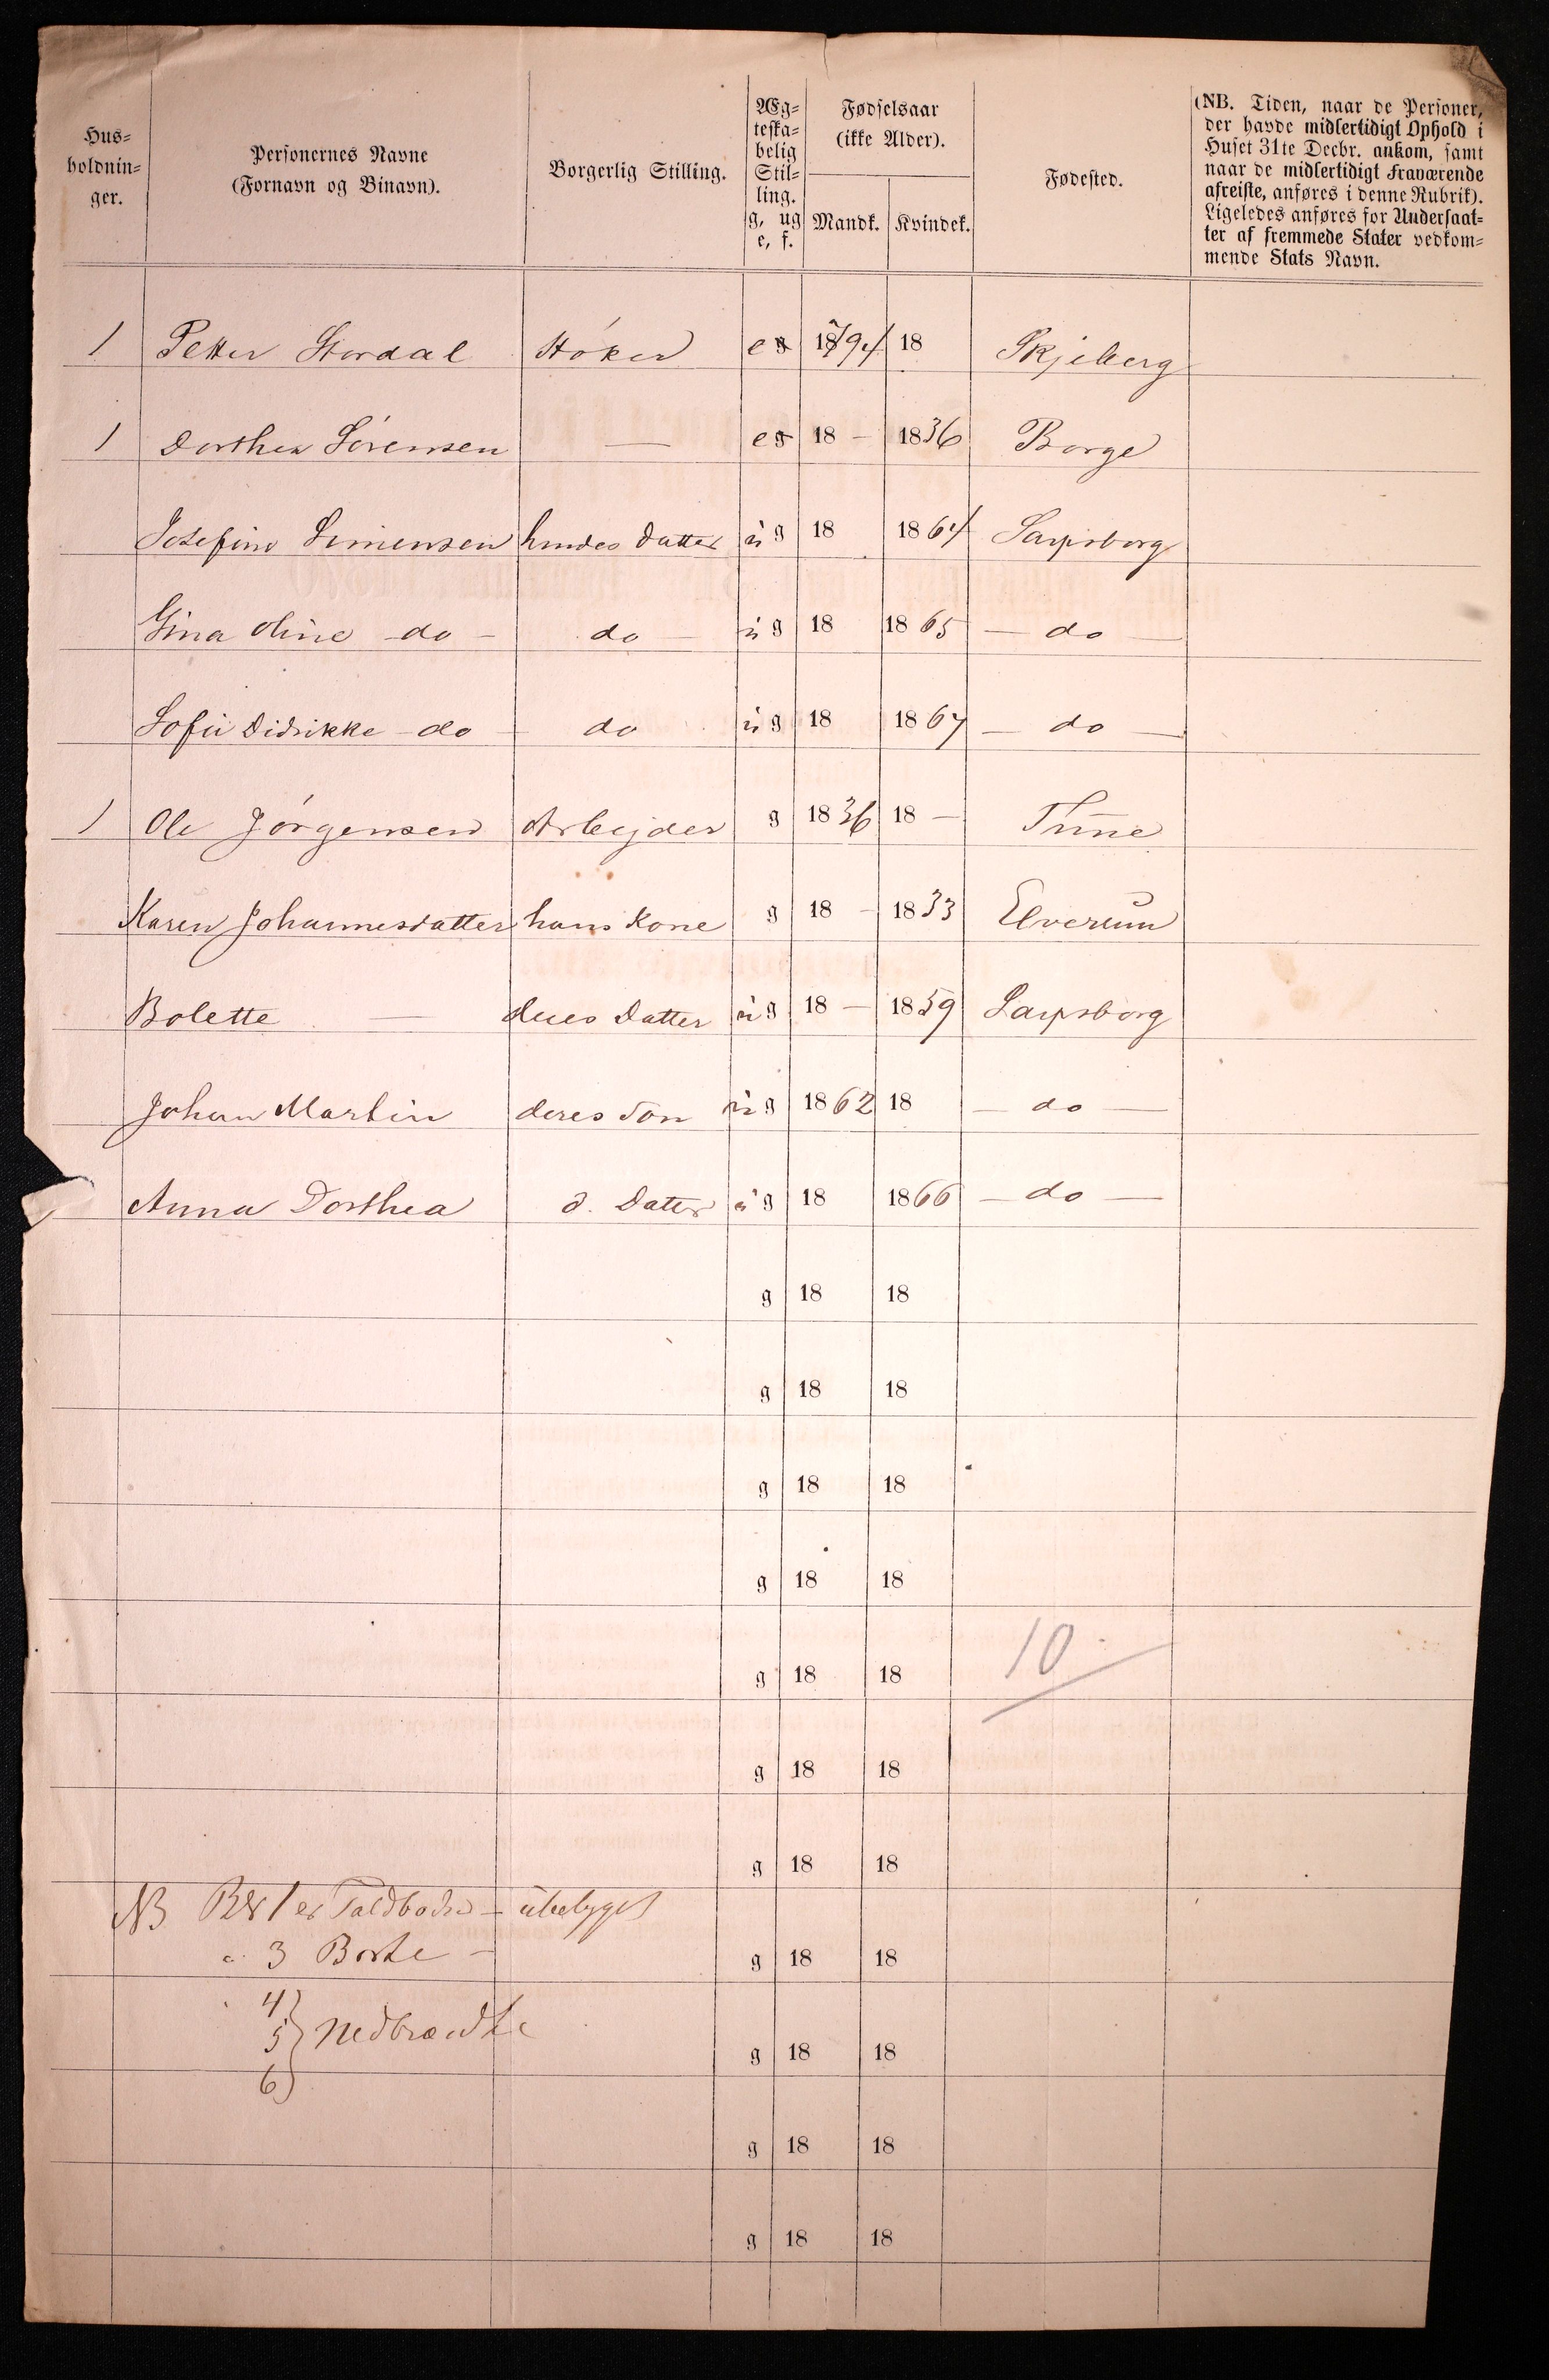 Hus=
holdnin=
ger.
Personernes Navne
(Fornavn og Binavn).
Borgerlig Stilling.
Æg=
teska=
belig
Stil=
ling.
g, ug
e, f.
Fødselsaar
(ikke Alder).
Mandk. Kvindek.
Fødested.
(NB. Tiden, naar de Personer,
der havde midlertidigt Ophold i
Huset 31te Decbr. ankom, samt
naar de midlertidigt Fraværende
afreiste, anføres i denne Rubrik).
Ligeledes anføres for Undersaat=
ter af fremmede Stater vedkom=
mende Stats Navn.
1 Petter Stordal Höker e g 1794 18 Skjeberg
1 Dorthea Sörensen — e g 18 — 1836 Borge
Josefine Simensen hendes Datter ü g 18 1864 Sarpsborg
Gina Oline - do - do — ü g 18 1865 — do —
Sofie Didrikke - do - do ü g 18 1867 — do —
1 Ole Jörgensen Arbejder g 1836 18 — Tune
Karen Johannesdatter hans Kone g 18 — 1833 Elverum
Bolette — deres Datter ü g 18 — 1859 Sarpsborg
Johan Martin deres Søn ü g 1862 18 — do —
Anna Dorthea d. Datter ü g 18 1866 — do —
g 18 18
g 18 18
g 18 18
g 18 18
g 18 18 10
g 18 18
g 18 18
NB 1 er Toldboden — übebyget
" 3 Borte — g 18 18
4)
5} Nedbrændte g 18 18
6)
g 18 18
g 18 18